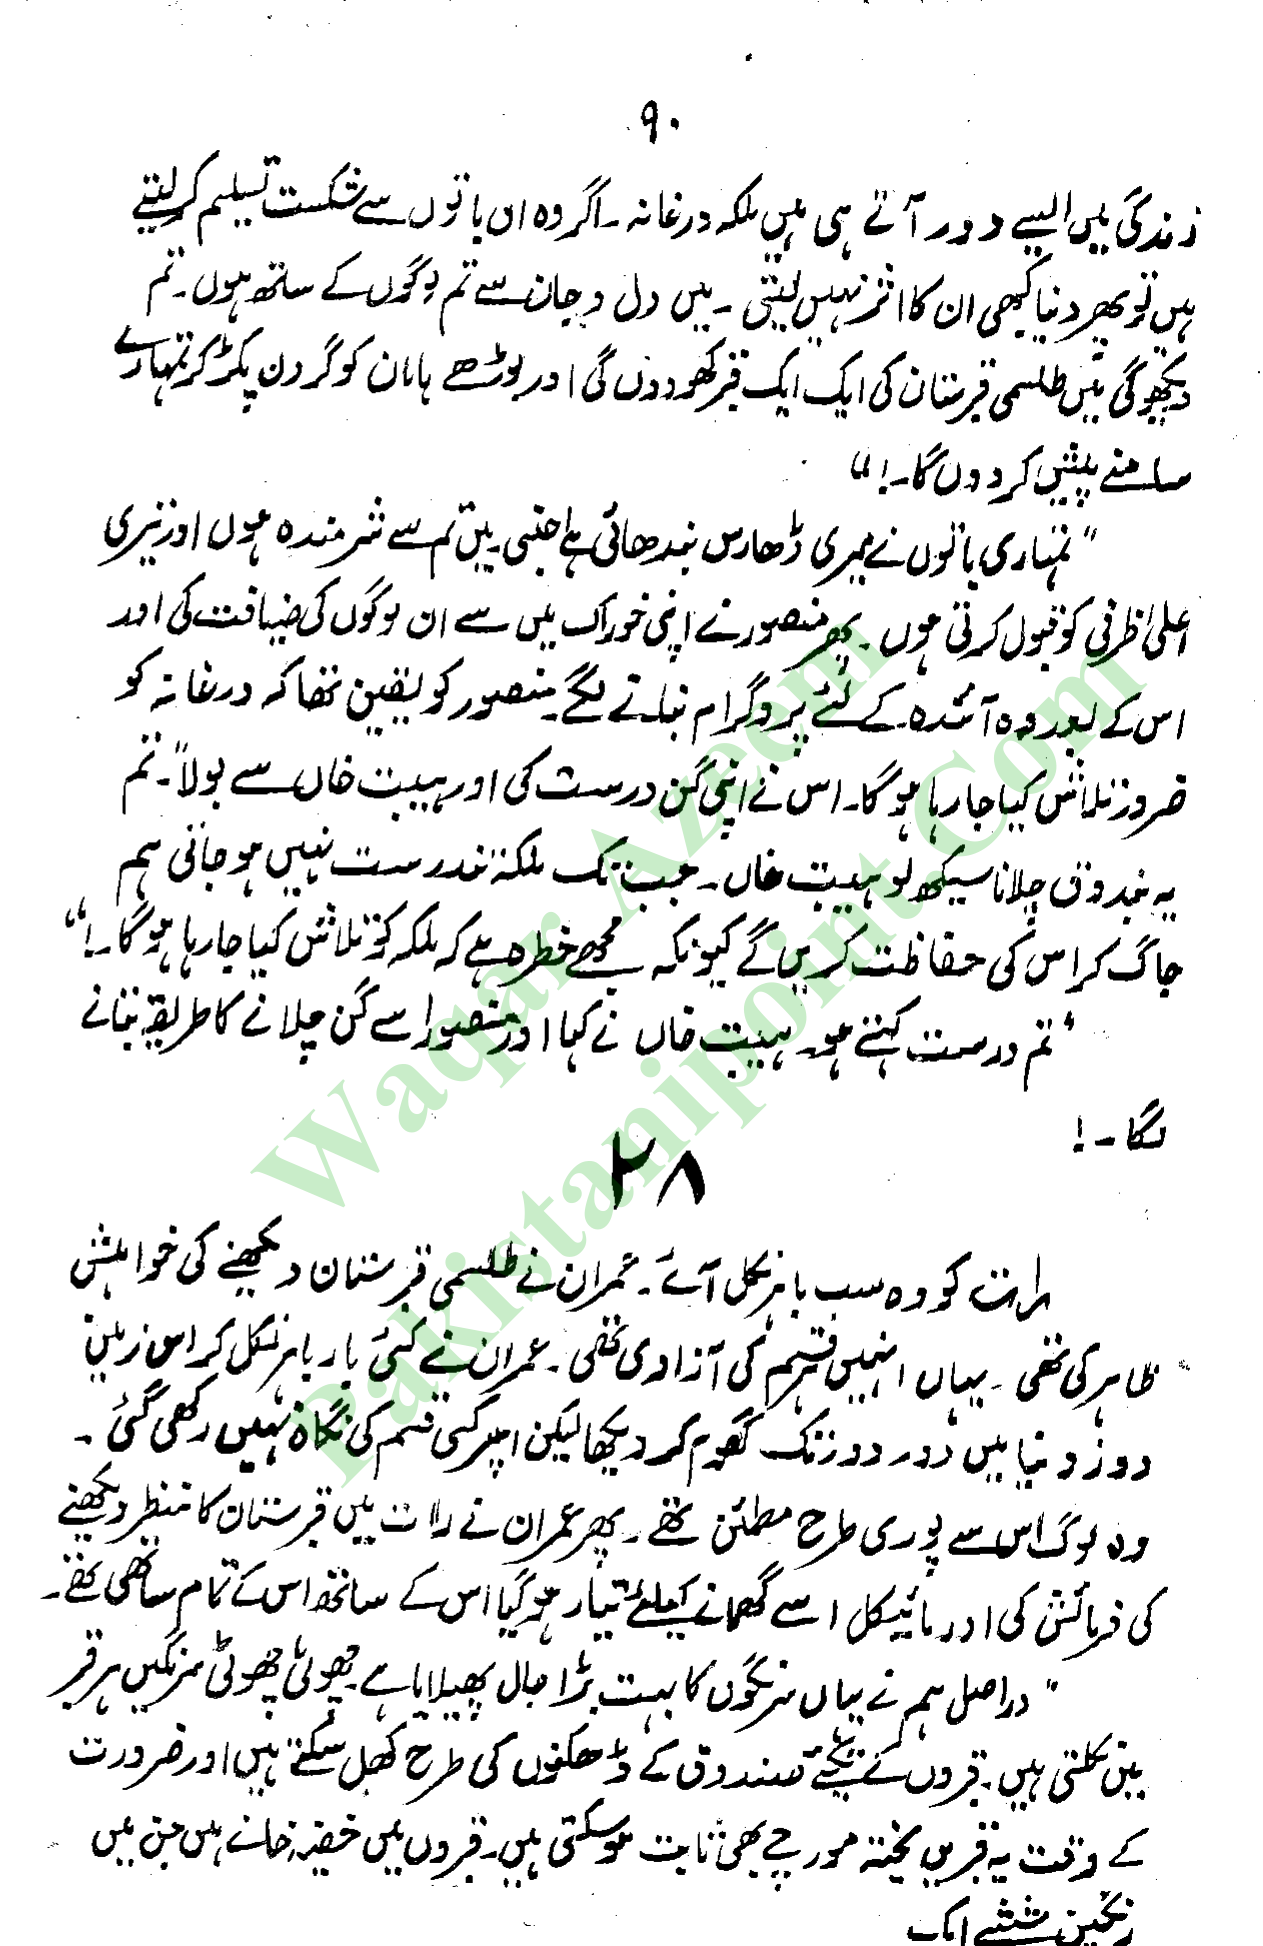 ۹۰
زندگی میں ایسے دور آتے ہی ہیں ملکہ درغانہ ۔ اگر وہ ان باتوں سے شکست تسلیم کر لیتے
ہیں تو پھر دنیا کبھی ان کا اثر نہیں لیتی ۔ میں دل و جان سے تم لوگوں کے ساتھ ہوں ۔ تم
دیکھو گی میں طلسمی قبرستان کی ایک ایک قبر کھود دوں گی اور بوڑھے ہامان کو گردن پکڑ کر تمہارے
سامنے پیش کر دوں گا ۔!"
"تمہاری باتوں نے میری ڈھارس بندھائی ہے اجنبی ۔ میں تم سے شرمندہ ہوں اور تیری
اعلیٰ ظرفی کو قبول کرتی ہوں ۔ پھر منصور نے اپنی خوراک میں سے ان لوگوں کی ضیافت کی اور
اس کے بعد وہ آئندہ کے لئے پروگرام بنانے لگے ۔ منصور کو یقین تھا کہ درغانہ کو
ضرور تلاش کیا جا رہا ہو گا ۔ اس نے اپنی گن درست کی اور ہیبت خاں سے بولا" ۔ تم
یہ بندوق چلانا سیکھ لو ہیبت خاں ۔ جب تک ملکہ تندرست نہیں ہو جاتی ہم
جاگ کر اس کی حفاظت کریں گے کیونکہ مجھے خطرہ ہے کہ ملکہ کو تلاش کیا جا رہا ہو گا ۔!"
'تم درست کہتے ہو ۔ ہیبت خاں نے کہا اور منصور اسے گن چلانے کا طریقہ بتانے
لگا ۔!
۲۸
رات کو وہ سب باہر نکل آئے ۔ عمران نے طلسمی قبرستان دیکھنے کی خواہش
ظاہر کی تھی ۔ یہاں انہیں ہر قسم کی آزادی تھی ۔ عمران نے کئی بار باہر نکل کر اس زمین
دوز دنیا میں دور دور تک گھوم کر دیکھا لیکن اس پر کسی قسم کی نگاہ نہیں رکھی گئی ۔
وہ لوگ اس سے پوری طرح مطمئن تھے ۔ پھر عمران نے رات میں قبرستان کا منظر دیکھنے
کی فرمائش کی اور مائیکل اسے گھمانے کیلئے تیار ہو گیا اس کے ساتھ اس کے تمام ساتھی تھے ۔
" دراصل ہم نے یہاں سرنگوں کا بہت بڑا جال پھیلایا ہے ۔ چھوٹی چھوٹی سرنگیں ہر قبر
میں نکلتی ہیں ۔ قبروں کے تکئے صندوق کے ڈھکنوں کی طرح کھل سکتے ہیں اور ضرورت
کے وقت یہ قبریں پختہ مورچے بھی ثابت ہو سکتی ہیں ۔ قبروں میں خفیہ خانے ہیں جن میں
رنگین شیشے ایک
Waqar Azeem
Pakistanipoint.Com